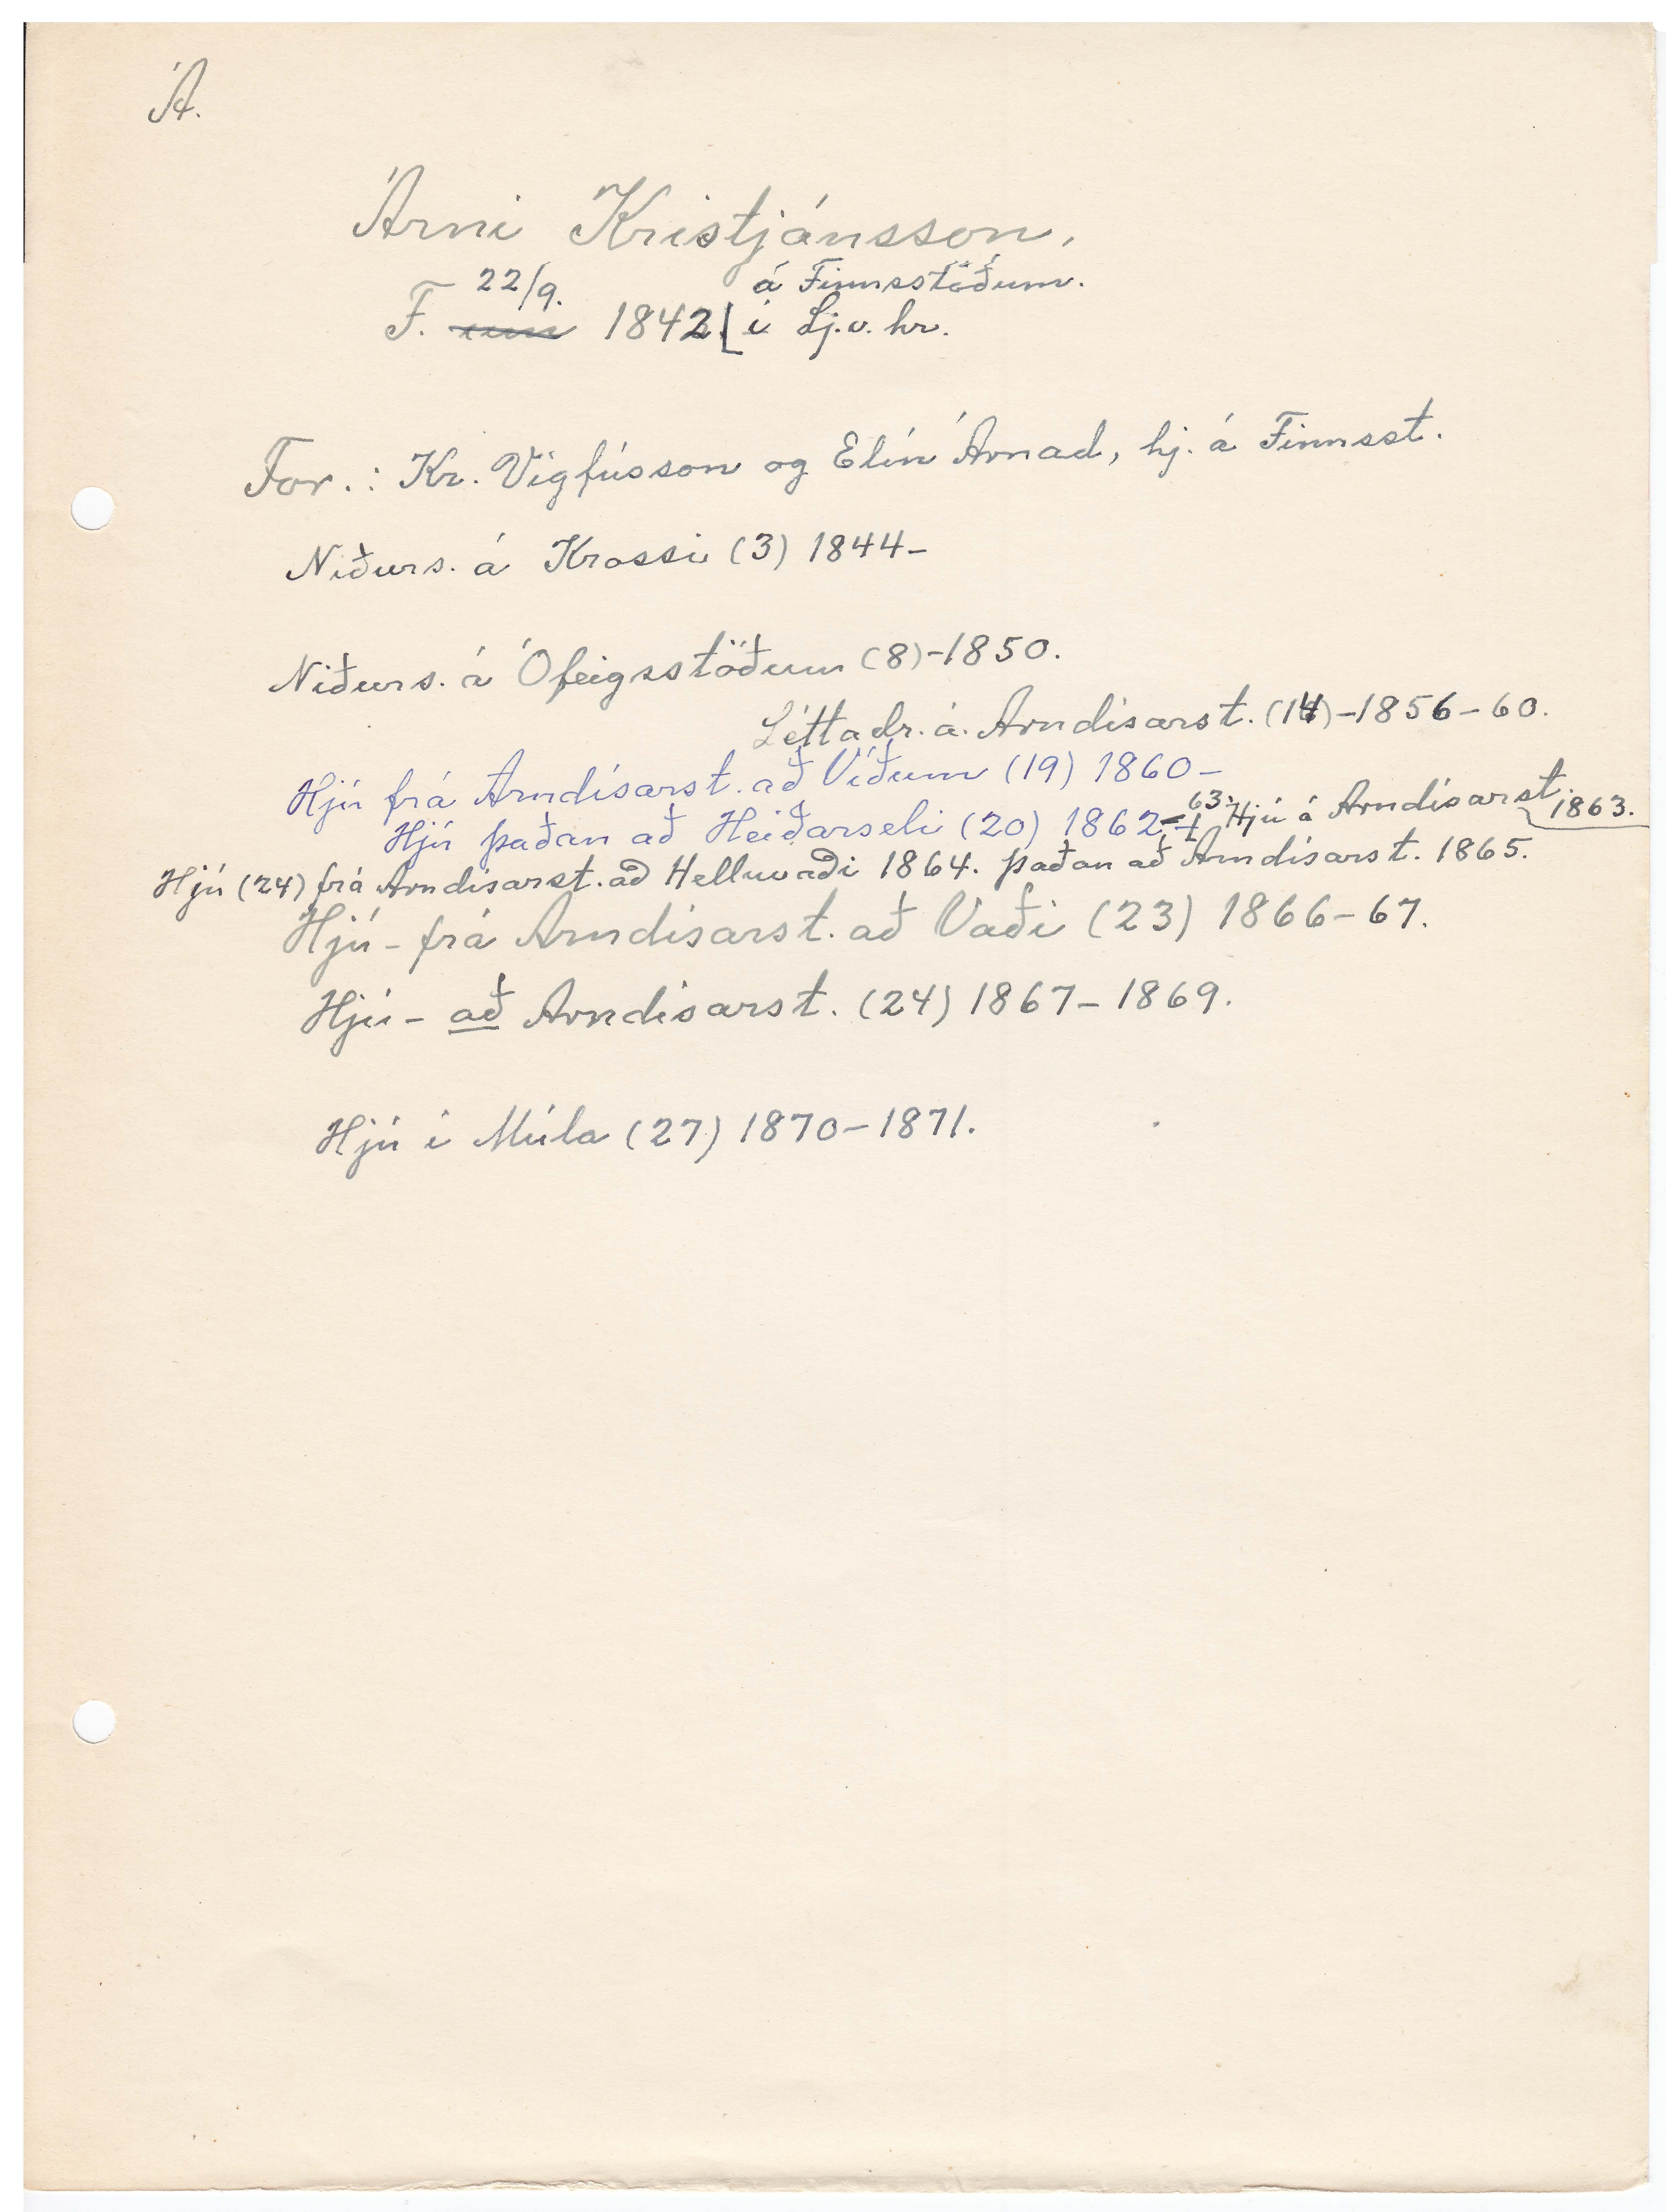 Á.
Árni Kristjánsson.
22/9. á Finnsstöðum.
F. 1842. í Lj.v. hr.
For.: Kr. Vigfússon og Elín Árnad, hj. á Finnsst.
Niðurs. á Krossi (3) 1844-
Niðurs. á Ófeigsstöðum (8)-1850.
Léttadr. á. Arndísarst. (14)-1856-60.
Hjú frá Arndísarst. að Víðum (19) 1860-
Hjú þaðan að Heiðarseli (20) 1862-63. Hjú á Arndísarst. 1863.
Hjú (24) frá Arndísarst. að Helluvaði 1864. þaðan að Arndísarst. 1865.
Hjú - frá Arndísarst. að Vaði (23) 1866-67.
Hjú - að Arndísarst. (24) 1867-1869.
Hjú í Múla (27) 1870-1871.